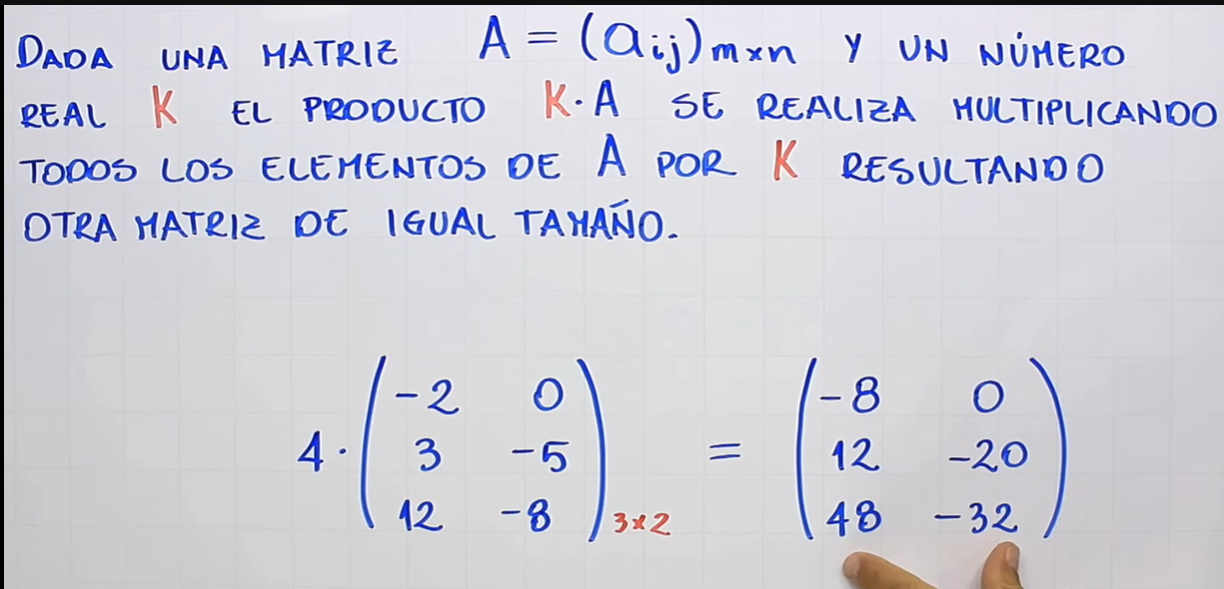 DADA UNA MATRIZ A = (aij)mxn Y UN NÚMERO
REAL K EL PRODUCTO K·A SE REALIZA MULTIPLICANDO
TODOS LOS ELEMENTOS DE A POR K RESULTANDO
OTRA MATRIZ DE IGUAL TAMAÑO.
-2 0 -8 0
4· 3 -5 = 12 -20
12 -8 3x2 48 -32